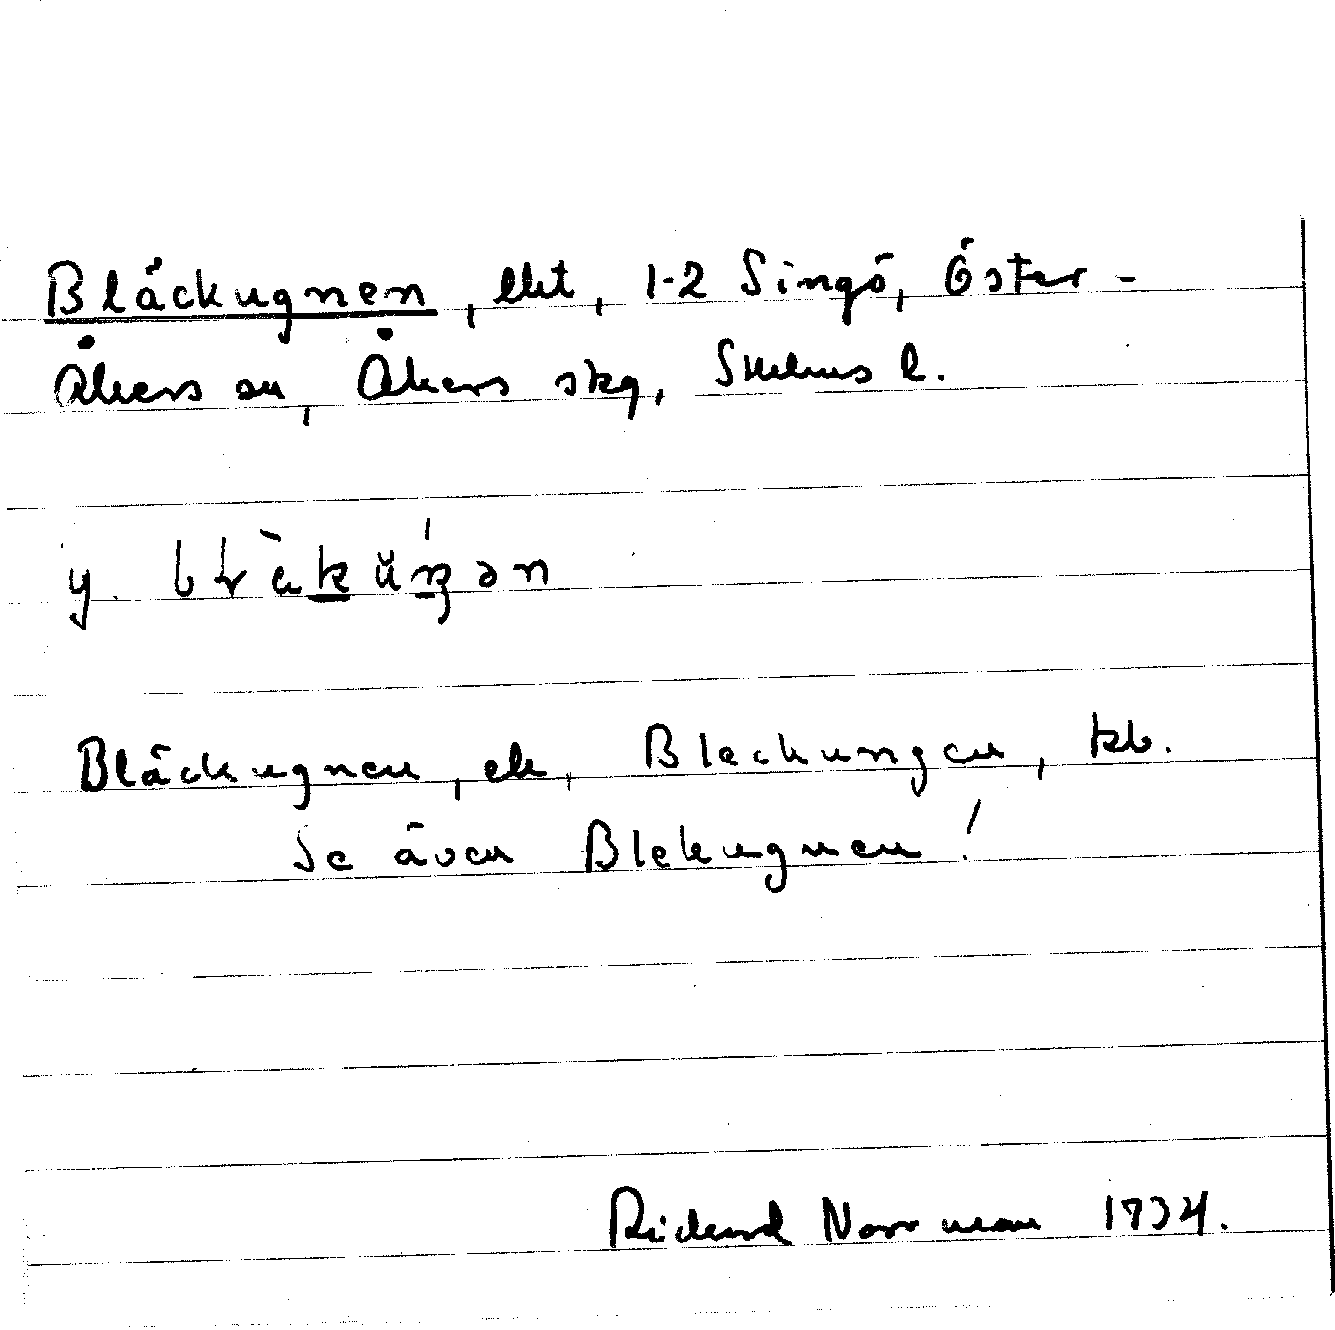 Bläckugnen, lht, 1-2 Singö, Öster-
Åkers sn, Åkers skg, Sthlms l.
y.
Bläckugnen, ek, Bleckungen, kb.
Se även Blekugnen!
Rickard Norrman 1934.